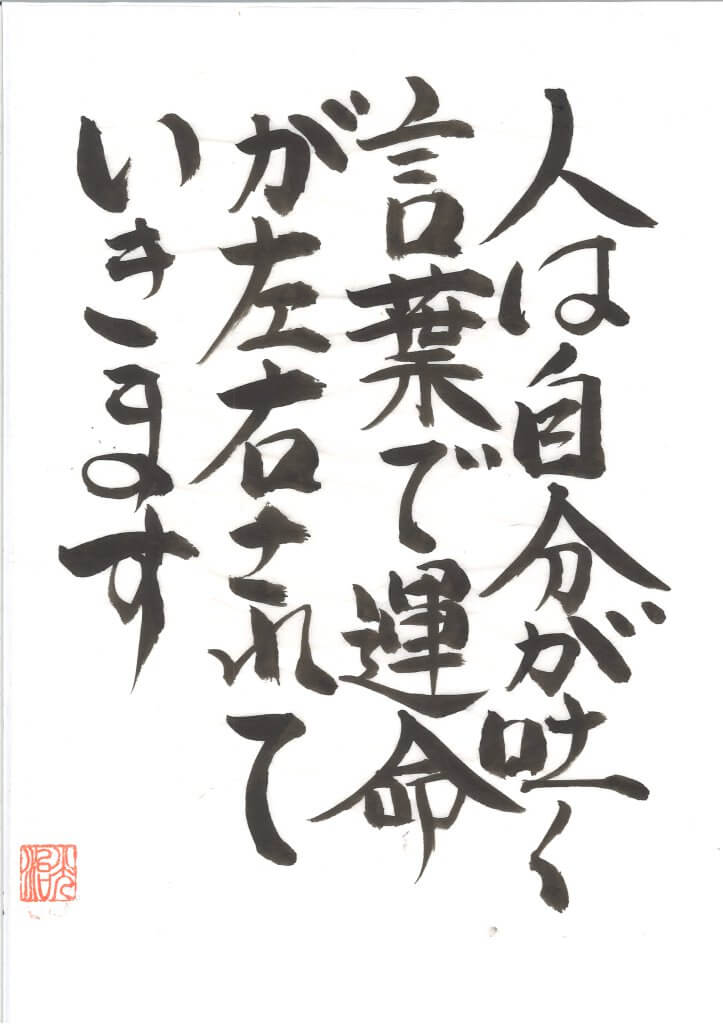 人は自分が吐く
言葉で運命
が左右されて
いきます